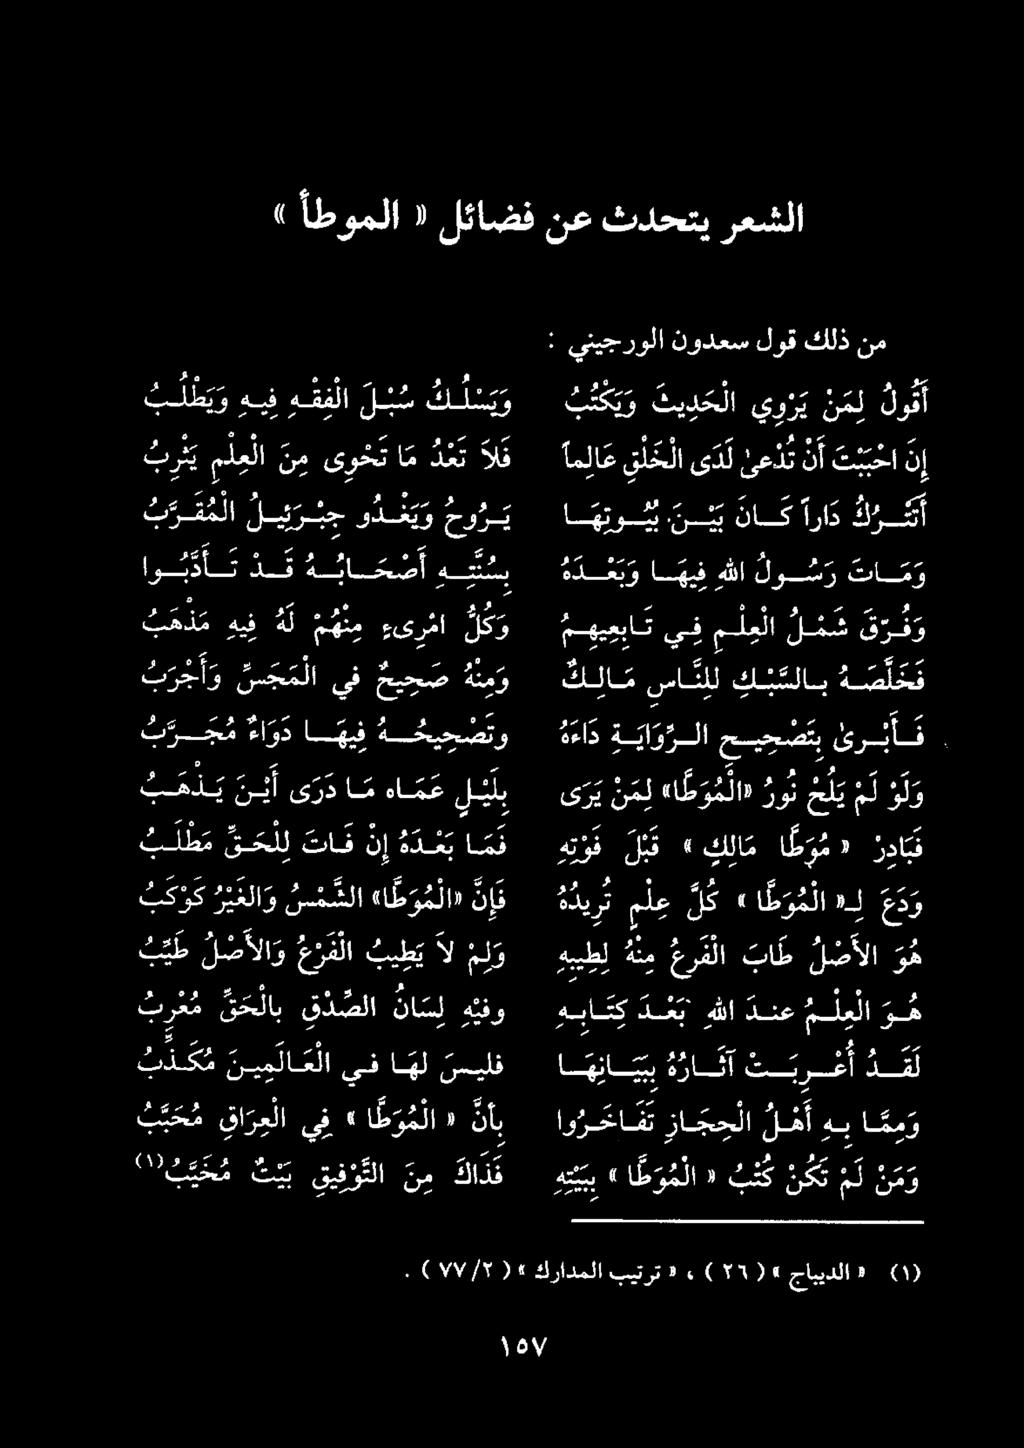 الشعر يتحدث عن فضائل « الموطأ »
من ذلك قول سعدون الورجيني :
أَقُولُ لِمَنْ يَرْوِي الْحَدِيثَ وَيَكْتُبُ وَيَسْلُـكُ سُبْـلَ الْفِقْـهِ فِيـهِ وَيَطْلُـبُ
إِن احْبَبْتَ أَنْ تُدْعىٰ لَدَى الْخَلْقِ عَالِماً فَلاَ تَعْدُ مَا تَحْوِى مِنَ الْعِلْمِ يَثْرِبُ
أَتَتْـرُكُ دَاراً كَـانَ بَيْـنَ بُيُـوتِهَـا يَـرُوحُ وَيَغْـدُو جِبْـرَئِيـلُ الْمُقَـرَّبُ
وَمَـاتَ رَسُـولُ اللهِ فِيهَـا وَبَعْـدَهُ بِسُنَّتِـهِ أَصْحَـابُـهُ قَـدْ تَـأَدَّبُـوا
وَفُـرِّقَ شَمْـلُ الْعِلْـمِ فِـي تَـابِعِيهِـمُ وَكُلُّ امْرِىءٍ مِنْهُمْ لَهُ فِيهِ مَذْهَبُ
فَخَلَّصَـهُ بِـالسَّبْـكِ لِلنَّـاسِ مَـالِـكٌ وَمِنْهُ صَحِيحٌ فِي الْمَجَسِّ وَأَجْرَبُ
فَـأَبْـرىٰ بِتَصْحِيـحِ الـرِّوَايَـةِ دَاءَهُ وتَصْحِيحُـهُ فِيهَـا دَوَاءٌ مُجَـرَّبُ
وَلَوْ لَمْ يَلُحْ نُورُ «الْمُوَطَّا» لِمَنْ يَرَى بِلَيْـلٍ عَمَـاه مَـا دَرَى أَيْـنَ يَـذْهَـبُ
فَبَادِرْ « مُوَطَّا مَالِكٍ » قَبْلَ فَوْتِهِ فَمَـا بَعْـدَهُ إِنْ فَـاتَ لِلْحَـقِّ مَطْلَـبُ
وَدَعْ لِـ« الْمُوَطَّا » كُلَّ عِلْمٍ تُرِيدُهُ فَإِنَّ «الْمُوَطَّا» الشَّمْسُ وَالغَيْرُ كَوْكَبُ
هُوَ الأَصْلُ طَابَ الْفَرْعُ مِنْهُ لِطِيبِهِ وَلِمْ لاَ يَطِيبُ الْفَرْعُ وَالأَصْلُ طَيِّبُ
هُـوَ الْعِلْـمُ عنـدَ اللهِ بَعْـدَ كِتَـابِـهِ وفيْهِ لِسَانُ الصِّدْقِ بالْحَقِّ مُعْرِبُ
لَقَـدْ أَعْـرِبَـتْ آثَـارُهُ بِبَيَـانِهَـا فليـسَ لهَـا فـي الْعَـالَمِيـنَ مُكـذِّبُ
وَمِمَّـا بِـهِ أَهْـلُ الْحِجَـازِ تَفَـاخَـرُوا بِأَنَّ « الْمُوَطَّا » فِي الْعِرَاقِ مُحَبَّبُ
وَمَنْ لَمْ تَكُنْ كُتْبُ « الْمُوَطَّا » بِبَيْتِهِ فَذَاكَ مِنَ التَّوْفِيقِ بَيْتٌ مُخَيَّبُ(١)
(١) « الديباج » ( ٢٦ ) ، « ترتيب المدارك » ( ٢/ ٧٧ ) .
١٥٧